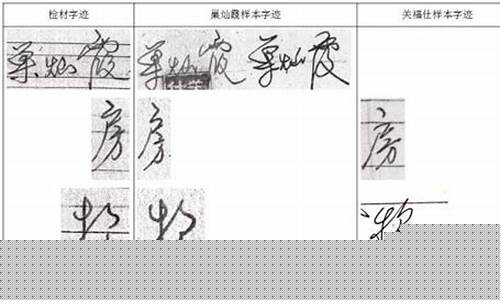 检材字迹 巢灿霞样本字迹 关福仕样本字迹
巢灿霞 巢灿霞 巢灿霞
房 房 房